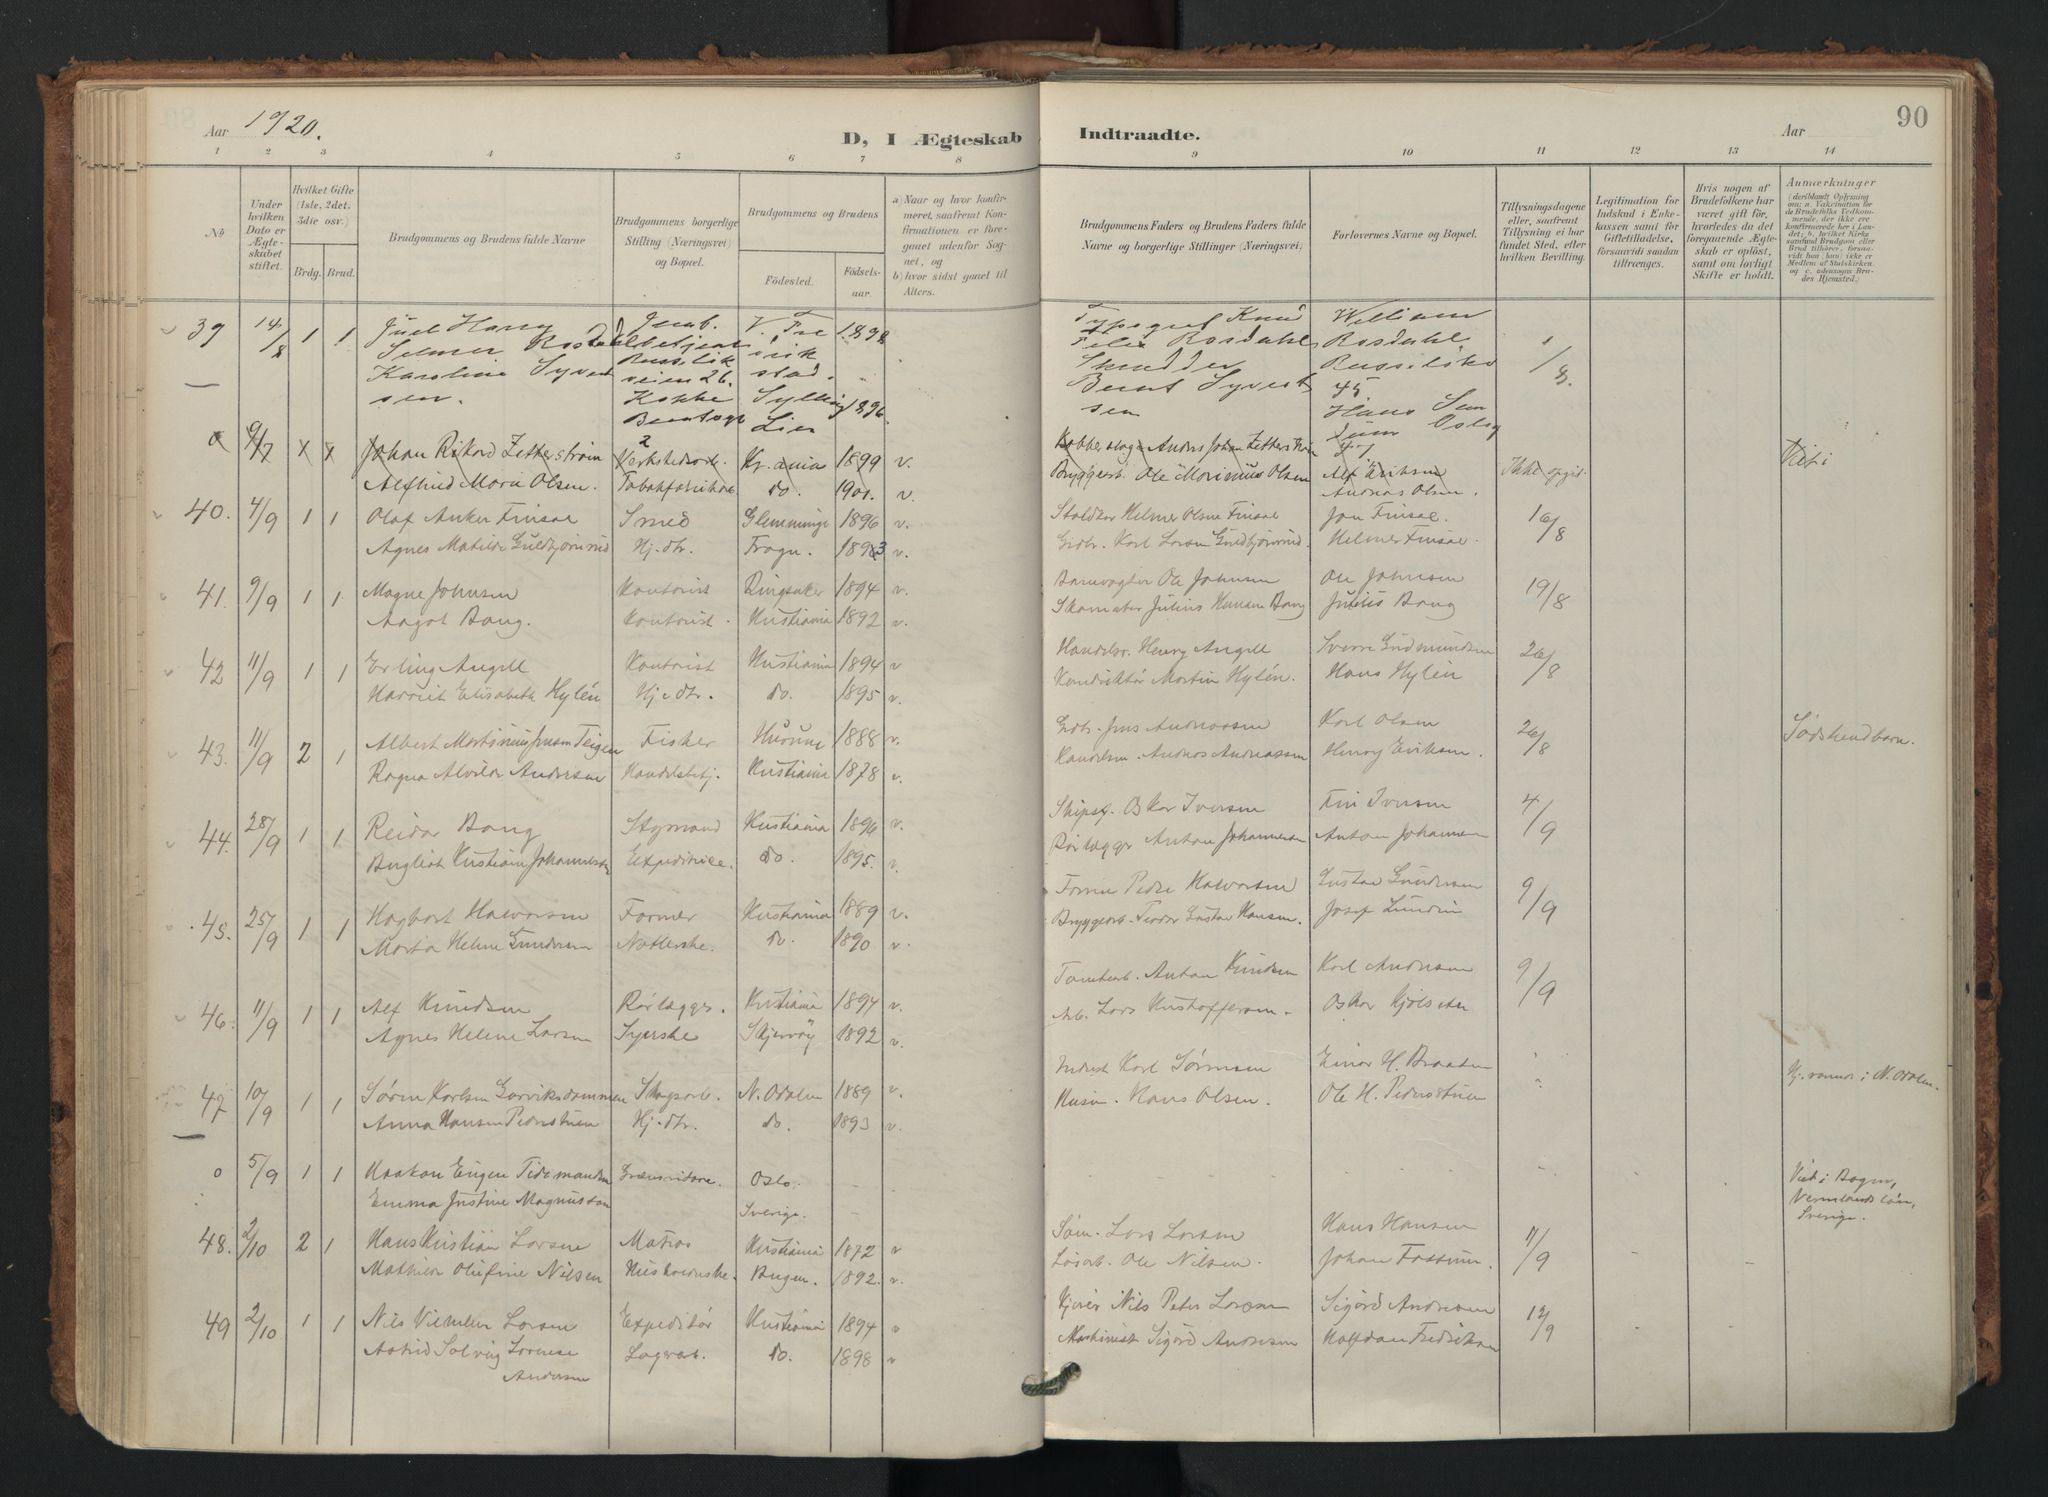 90
Aar 1920.
D, I Ægteskab Indtraadte.
Aar
1 2 3 4 5 6 7 8 9 10 11 12 13 14
No
Under hvilken Dato er Ægteskabet stiftet.
Hvilket Gifte (1ste, 2det, 3die osv.)
Brdg. Brud.
Brudgommens og Brudens fulde Navne
Brudgommens borgerlige Stilling (Næringsvei) og Bopæl.
Brudgommens og Brudens
Fødested.
Fødselsaar.
a) Naar og hvor konfirmeret, saafremt Konfirmationen er foregaaet udenfor Sognet, og
b) hvor sidst gaaet til Alters.
Brudgommens Faders og Brudens Faders fulde Navne og borgerlige Stillinger (Næringsvei).
Forlovernes Navne og Bopæl.
Tillysningsdagene eller, saafremt Tillysning ei har fundet Sted, efter hvilken Bevilling.
Legitimation for Indskud i Enkekassen samt for Giftetilladelse, forsaavidt saadan tiltrænges.
Hvis nogen af Brudefolkene har været gift før, hvorledes da det foregaaende Ægteskab er opløst, samt om lovligt Skifte er holdt.
Anmærkninger
39 14/8 1 1 Juel Harry V. Fre 1898 Typograf Knud William
Selmer Rosdahl Felix Rosdahl Rosdahl 1/8.
Karoline Syvert veien 26. stad. Skredder
sen. Kokke Sylling 1896 Bernt Syvert 45.
Lier sen Hans
0 9/7 x x Johan Rikard Zetterstrøm Verkstedsarb. Kr.ania 1899 v. Anders Johan Zetterstrøm
Alfhild Marie Olsen. Tobakfabrikarb. do. 1901. v. Bryggearb. Ole Marinius Olsen Alf Eriksen Ikke opgit.
Andreas Olsen.
40. 4/9 1 1 Olaf Anker Finsal Smed Glemminge 1896 v. Staldkar Helmer Olsen Finsal Jon Finsal. 16/8
Agnes Matilde Guldbjørnrud Hj. dtr. Frogn. 1893 v. Grdbr. Karl Larsen Guldbjørnrud. Helmer Finsal.
41. 9/9 1 1. Magne Johnsen Kontorist Ringsaker 1894 v. Banevogter Ole Johnsen Ole Johnsen 19/8
Aagot Bang. Kontorist. Kristiania 1892 v. Skomaker Julius Hansen Bang Julius Bang
42 11/9 1 1 Erling Angell Kontorist Kristiania 1894 v Handelsr. Henry Angell Sverre Gudmundsen 26/8
Harriet Elisabeth Hylén Hj. dtr. do. 1895 v. Konduktør Martin Hylén. Hans Hylén
43. 11/9 2 1 Albert Martinius Jensen Teigen Fisker Hurum 1888 v. Grdbr. Jens Andreassen Karl Olsen 26/8 Sødskendbarn.
Ragna Alvilde Andersen Handelsbetj. Kristiania 1878 v. Handelsm. Andreas Andreassen Henry Eriksen.
44. 28/9 1 1 Reidar Bang Styrmand Kristiania 1896 v. Skipsf. Oskar Iversen Finn Iversen 4/9
Kristiane Johannessen Expeditrice. do. 1895. v. Rørlægger Anton Johannessen Anton Johannessen
45. 25/9 1 1 Hagbart Halvorsen Former Kristiania 1889 v. Former Peder Halvorsen Gustav Gundersen 9/9
Marta Helene Gundersen do. 1890 v. Bryggearb. Teodor Gustav Hansen. Josef Lundin
46. 11/9 1 1 Alf Knudsen Rørlægger. Kristiania 1894 v. Tomtearb. Anton Knudsen Karl Andersen 9/9
Agnes Helene Larsen Syerske Skjervøy 1892 v. Arb. Lars Kristoffersen. Oskar Kjølseter
47 10/9 1 1 Søren Karlsen Garviksdammen Skogsarb. N. Odalen 1889 v. Inderst Karl Sørensen Einar H. Braaten Hj. vand i N. Odalen.
Anna Hansen Pederstuen Hj. dtr. do. 1893 v. Husm. Hans Olsen. Ole H. Pederstuen
0 5/9 1 1 Haakon Eugen Tidemandsen Oslo. Viet i Bogen,
Emma Justine Magnusson Sverige. Vermlands län, Sverige.
48. 2/10 2 1 Hans Kristian Larsen Matros Kristiania 1872 v Søm. Lars Larsen Hans Hansen 11/9
Mathilde Olufine Nilsen Husholderske. Bergen. 1892. v. Løsarb. Ole Nilsen. Johan Fossum.
49 2/10 1 1 Nils Vilhelm Larsen Expeditør Kristiania 1894 v Kjører Nils Peter Larsen Sigurd Andersen 12/9
Astrid Solveig Lorense Andersen Lagerarb. do. 1898 v Maskinist Sigurd Andersen Halfdan Fredriksen